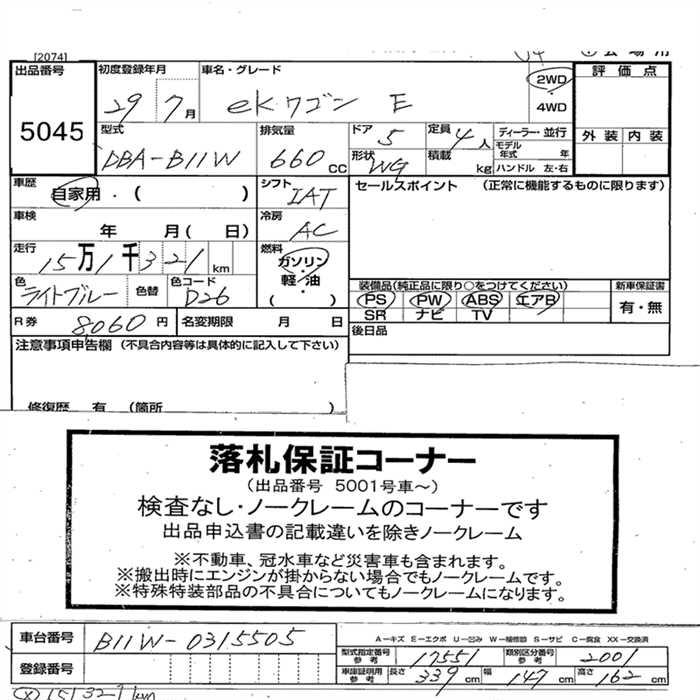 [2074]
出品番号 初度登録年月 車名・グレード 2WD 評価点
5045 29 7月 eKワゴン E 4WD
型式 排気量 ドア 定員 ディーラー・並行 外装 内装
DBA-B11W 660CC 5 4人 モデル年式 年
形状 WG 積載 kg ハンドル 左・右
車歴 自家用・( ) シフト IAT セールスポイント (正常に機能するものに限ります)
車検 年 月( 日) 冷房 AC
走行 15万1千321km 燃料 ガソリン・軽・油( )
色 ライトブルー 色替 色コード D26 装備品(純正品に限り○をつけてください) 新車保証書
PS PW ABS エアB 有・無
SR ナビ TV
R券 8060円 名変期限 月 日 後日品
注意事項申告欄 (不具合内容等は具体的に記入して下さい)
修復歴 有 (箇所 )
落札保証コーナー
(出品番号 5001号車~)
検査なし・ノークレームのコーナーです
出品申込書の記載違いを除きノークレーム
※不動車、冠水車など災害車も含まれます。
※搬出時にエンジンが掛からない場合でもノークレームです。
※特殊特装部品の不具合についてもノークレームになります。
車台番号 B11W-0315505 A-キズ E-エクボ U-凹み W-補修跡 S-サビ C-腐食 XX-交換済
型式指定番号 参考 17551 類別区分番号 参考 2001
登録番号 車庫証明用 参考 長さ 339cm 幅 147cm 高さ 162cm